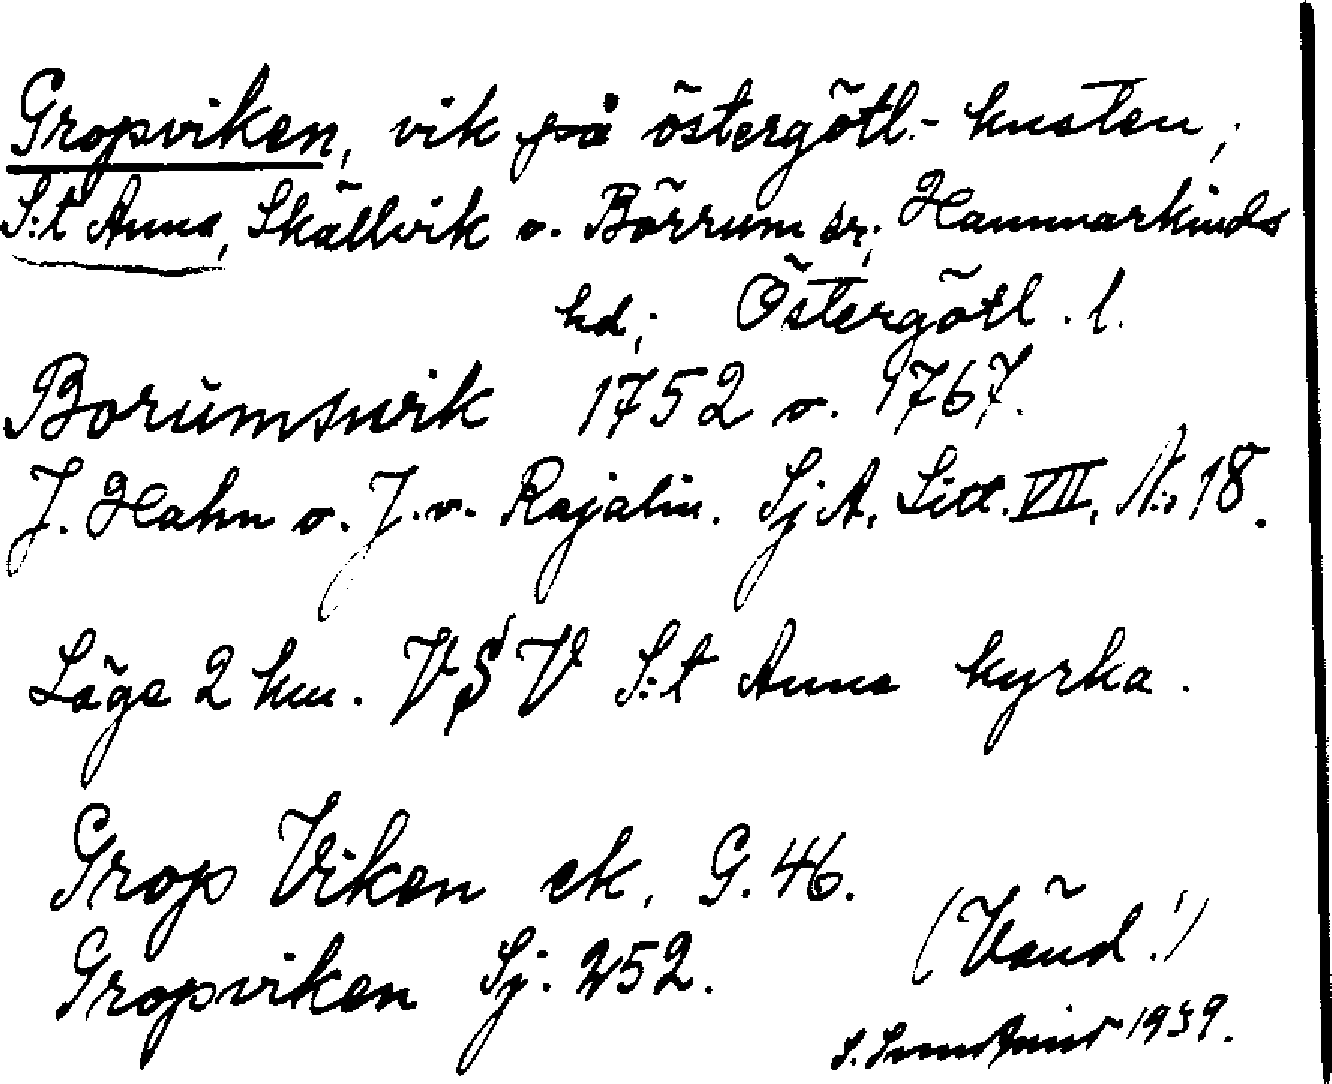 Gropviken, vik på östergötl.- kusten,
S:t Anna, Skällvik o. Börrum sr; Hammarkinds
hd; Östergötl. l.
Borumswik 1752 o. 1767.
J. Hahn o. J. v. Rajalin. Sj A. Litt. VII. No 18.
Läge 2 km. VSV S:t Anna kyrka.
Grop Viken ek. G. 46.
Gropviken Sj. 252.
(Vänd!)
S. 1939.